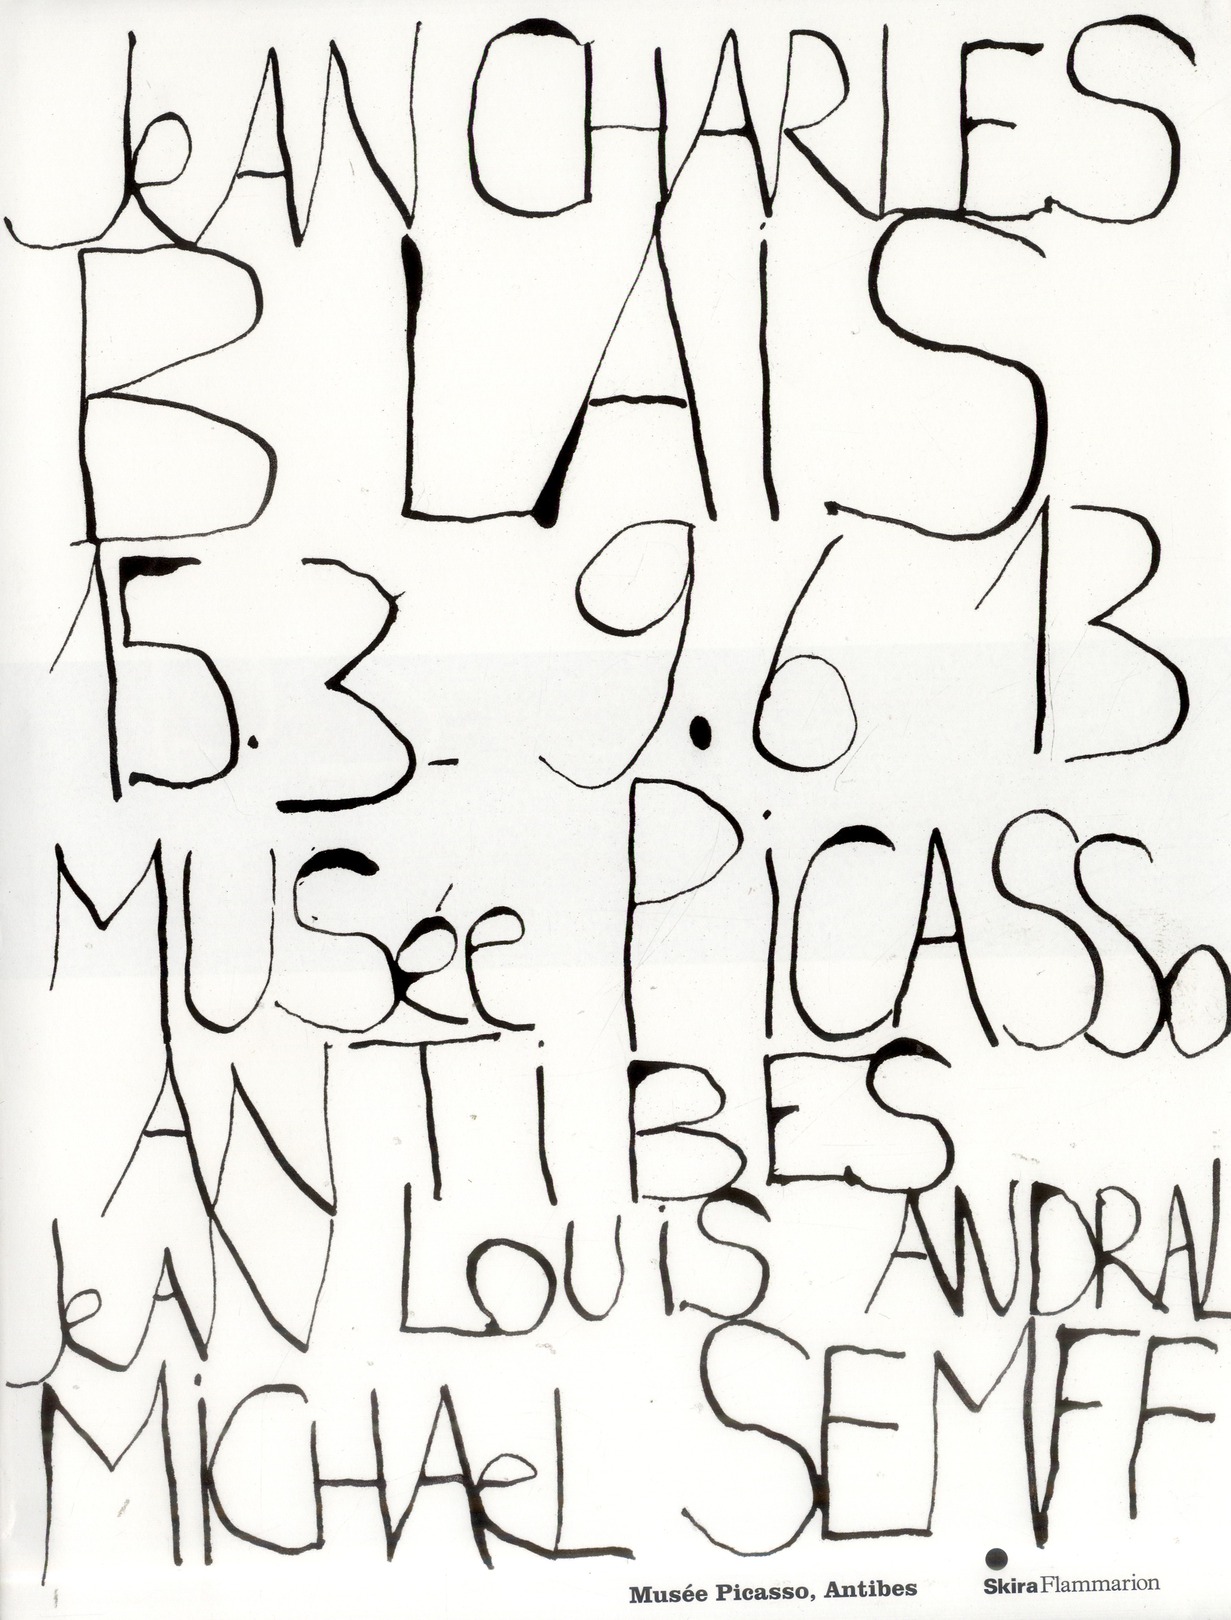 JeAN CHARLES
BLAIS
15.3-9.6 13
MUSée PiCASSo
ANTiBES
JeAN LOUiS ANDRAL
MiCHAeL SEMFF
Musée Picasso, Antibes
SkiraFlammarion